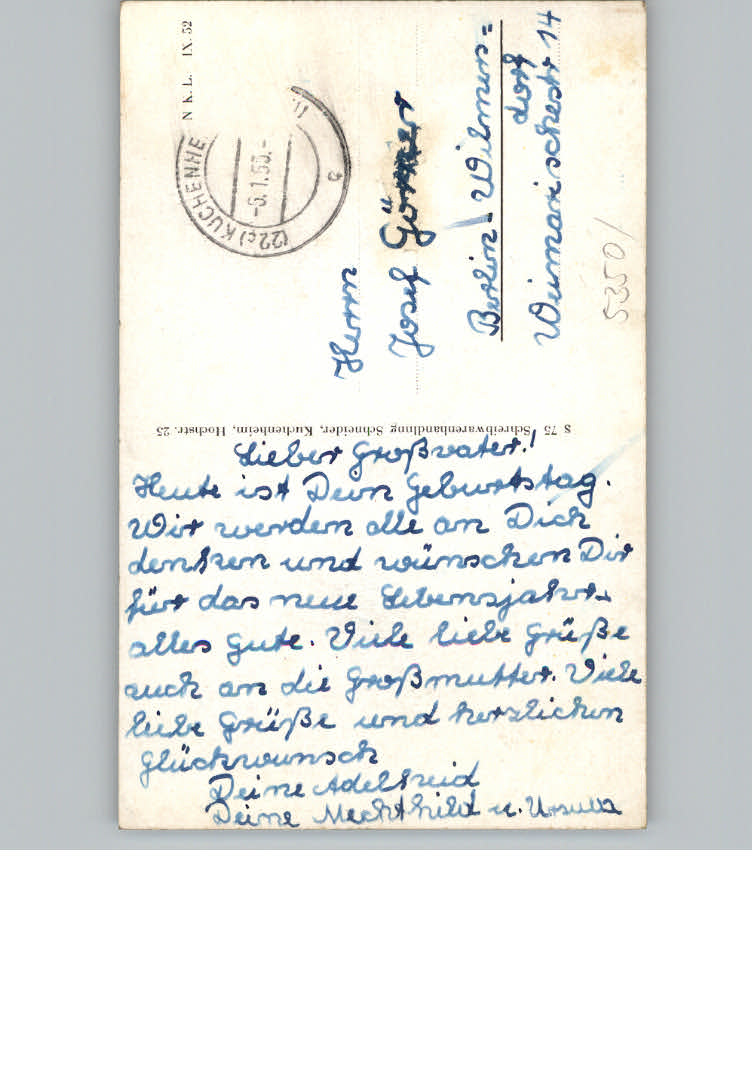 N K. L. IX. 52
(22c) KUCHENHE
-6.1.53.-
c
Herrn
Josef Görner
Berlin-Wilmers=
dorf
Weimarischestr 14
5350/
S 75 Schreibwarenhandlung Schneider, Kuchenheim, Hochstr. 25
Lieber Großvater!
Heute ist Dein Geburtstag.
Wir werden alle an Dich
denken und wünschen Dir
für das neue Lebensjahr
alles gute. Viele liebe Grüße
auch an die Großmutter. Viele
liebe Grüße und herzlichen
Glückwunsch
Deine Adelheid
Deine Mechthild u. Ursula